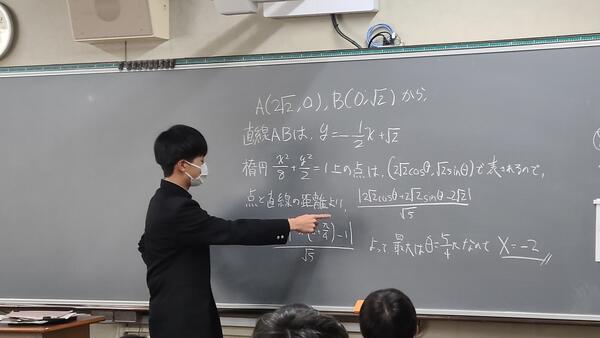 A(2√2,0), B(0,√2)から,
直線ABは, y=-1/2x+√2
楕円 x²/8+y²/2=1上の点は, (2√2cosθ,√2sinθ)で表されるので,
点と直線の距離より, |2√2cosθ+2√2sinθ-2√2|/√5
π/4)-1|/√5 よって最大はθ=5/4πなので X=-2